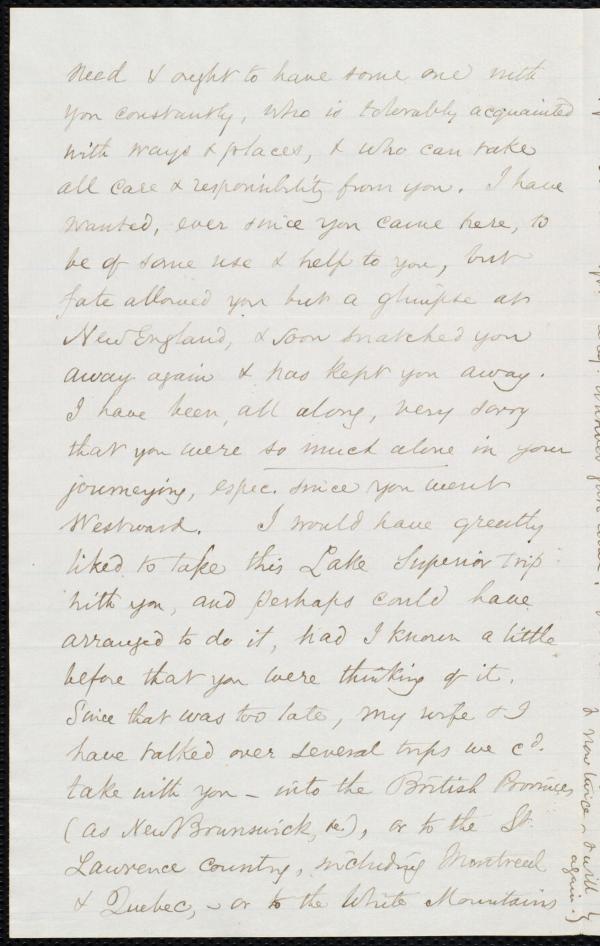 need & ought to have some one with
you constantly, who is tolerably acquainted
with ways & places, & who can take
all care & responsibility from you. I have
wanted, ever since you came here, to
be of some use & help to you, but
fate allowed you but a glimpse at
New England, & soon snatched you
away again & has kept you away.
I have been, all along, very sorry
that you were so much alone in your
journeying, espec. since you went
Westward. I would have greatly
liked to take this Lake Superior trip
with you, and perhaps could have
arranged to do it, had I known a little
before that you were thinking of it.
Since that was too late, my wife & I
have talked over several trips we cd.
take with you - into the British Provinces
(as New Brunswick, &c.), or to the St.
Lawrence country, including Montreal
& Quebec, - or to the White Mountains
& now twice & will
again.)